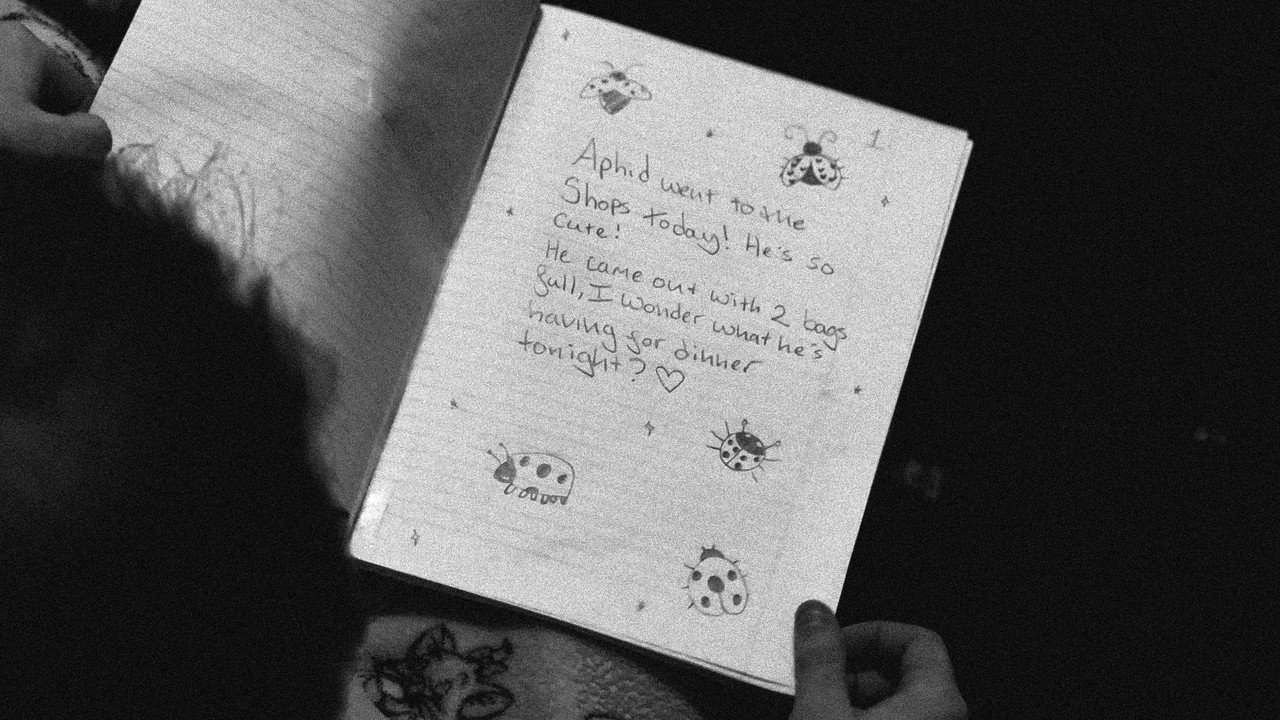 1
Aphid went to the
Shops today! He's so
cute!
He came out with 2 bags
full, I wonder what he's
having for dinner
tonight? ♡